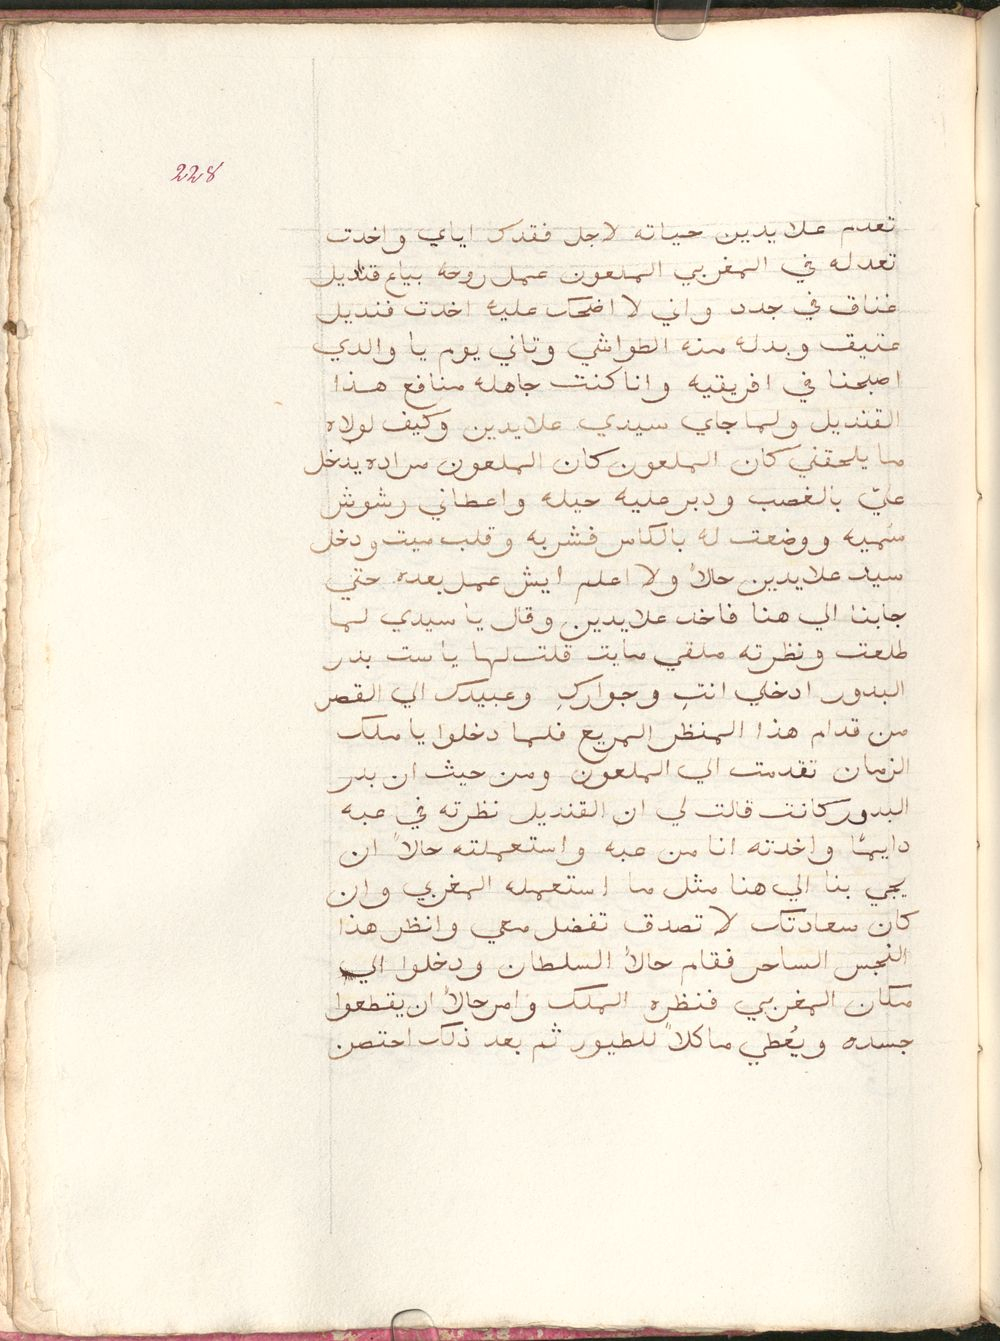 228
تعدم علايدين حياته لاجل فقدك اياي واخدت
تعدله في المغربي الملعون عمل روحه بياع قناديل
غناف في جدد واني لا اضحك عليه اخدت قنديل
عتيق وبدله منه الطواشي وتاني يوم يا والدي
اصبحنا في افريقيه وانا كنت جاهله منافع هذا
القنديل ولما جاي سيدي علايدين وكيف لولاه
ما يلحقني كان الملعون كان الملعون مراده يدخل
عليّ بالغصب ودبر عليه حيله واعطاني رشوش
سميه ووضعت له بالكاس فشربه وقلب ميت ودخل
سيد علايدين حالاً ولا اعلم ايش عمل بعده حتي
جابنا الي هنا فاخد علايدين وقال يا سيدي لما
طلعت ونظرته ملقي مايت قلت لها يا ست بدر
البدور ادخلي انتِ وجواركِ وعبيدك الي القصر
من قدام هذا المنظر المريع فلما دخلوا يا ملك
الزمان تقدمت الي الملعون ومن حيث ان بدر
البدور كانت قالت لي ان القنديل نظرته في عبه
دايمًا واخدته انا من عبه واستعملته حالاً ان
يجي بنا الي هنا مثل ما استعمله المغربي وان
كان سعادتك لا تصدق تفضل معي وانظر هذا
النجس الساحر فقام حالاً السلطان ودخلوا الي
مكان المغربي فنظره الملك وامر حالاً ان يقطعوا
جسده ويُعطي ماكلاً للطيور ثم بعد ذلك احتصن